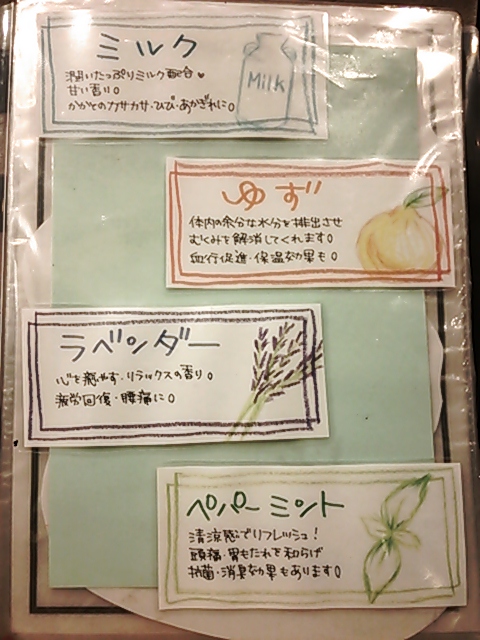 ミルク
潤いたっぷりミルク配合♥
甘い香り。
かかとのカサカサ・ひび・あかぎれに。
Milk
ゆず
体内の余分な水分を排出させ
むくみを解消してくれます。
血行促進・保温効果も。
ラベンダー
心を癒やす・リラックスの香り。
疲労回復・腰痛に。
ペパーミント
清涼感でリフレッシュ！
頭痛・胃もたれを和らげ
抗菌・消臭効果もあります。